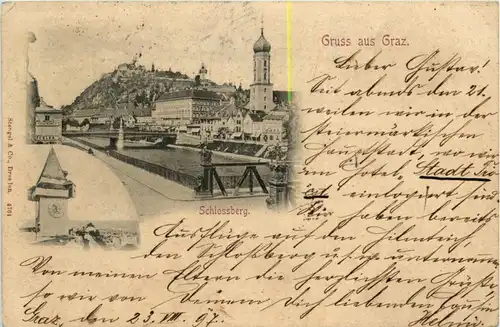 Gruss aus Graz.
Lieber Gustav!
Seit abends den 21.
weilen wir in der
steiermärkischen
Hauptstadt, wo wir
im Hotel, Stadt
einlogiert sind
Wir haben bereits
Schlossberg.
Ausflüge auf den
den Schlossberg u.s.w. unternommen
Von meinen Eltern die herzlichsten Grüße
so wie von Deinem Dich liebenden Cousin
Graz, den 23. VIII. 97.
Stengel & Co., Dresden. 4701